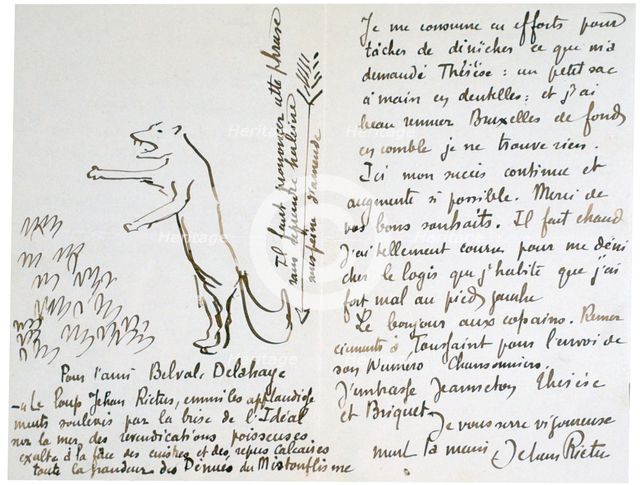 Il faut prononcer cette phrase
sans reprendre haleine
sous peine d'amende
Pour l'ami Belval-Delahaye
"Le loup Jehan Rictus, emmi les applaudisse
ments soulevés par la brise de l'Idéal
sur la mer des revendications poisseuses
exalte à la face des cuistres et des repus calcaires
toute la grandeur des Dénués du Mistouflisme
Je me consume en efforts pour
tâcher de dénicher ce que m'a
demandé Thérèse : un petit sac
à main en dentelles ; et j'ai
beau remuer Bruxelles de fond
en comble je ne trouve rien.
Ici mon succès continue et
augmente si possible. Merci de
vos bons souhaits. Il fait chaud
J'ai tellement couru pour me déni
cher le logis que j'habite que j'ai
fort mal au pied gauche
Le bonjour aux copains. Remer
ciements à Toussaint pour l'envoi de
son Numéro Chansonniers.
J'embrasse Jeanneton Thérèse
et Briquet
Je vous serre vigoureuse
ment la main Jehan Rictus
Heritage
Heritage
Heritage
Heritage
Heritage
Heritage